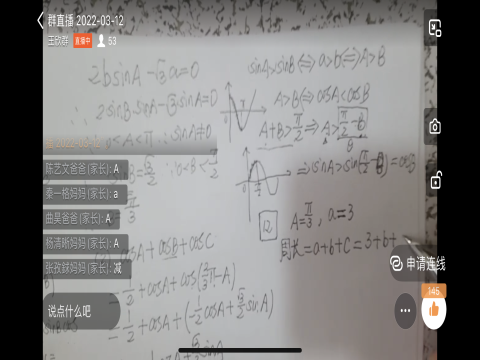 群直播 2022-03-12
王欣群 直播中 53
2bsinA-√3a=0
∴2sinB·sinA-√3sinA=0
0<A<π ∴sinA≠0
sinA>sinB⇔a>b⇔A>B
A>B⇔cosA<cosB
A+B>π/2⇔A>π/2-B
⇒sinA>sin(π/2-B)=cosB
12
A=π/3, a=3
周长=a+b+c=3+b+
cosA+cosB+cosC
=1/2+cosA+cos(2/3π-A)
=1/2+cosA+(-1/2cosA+√3/2sinA)
陈艺文爸爸(家长): A
秦一格妈妈(家长): a
曲昊爸爸(家长): A
杨清晰妈妈(家长): A
张孜鉌妈妈(家长): 减
说点什么吧
申请连线
145